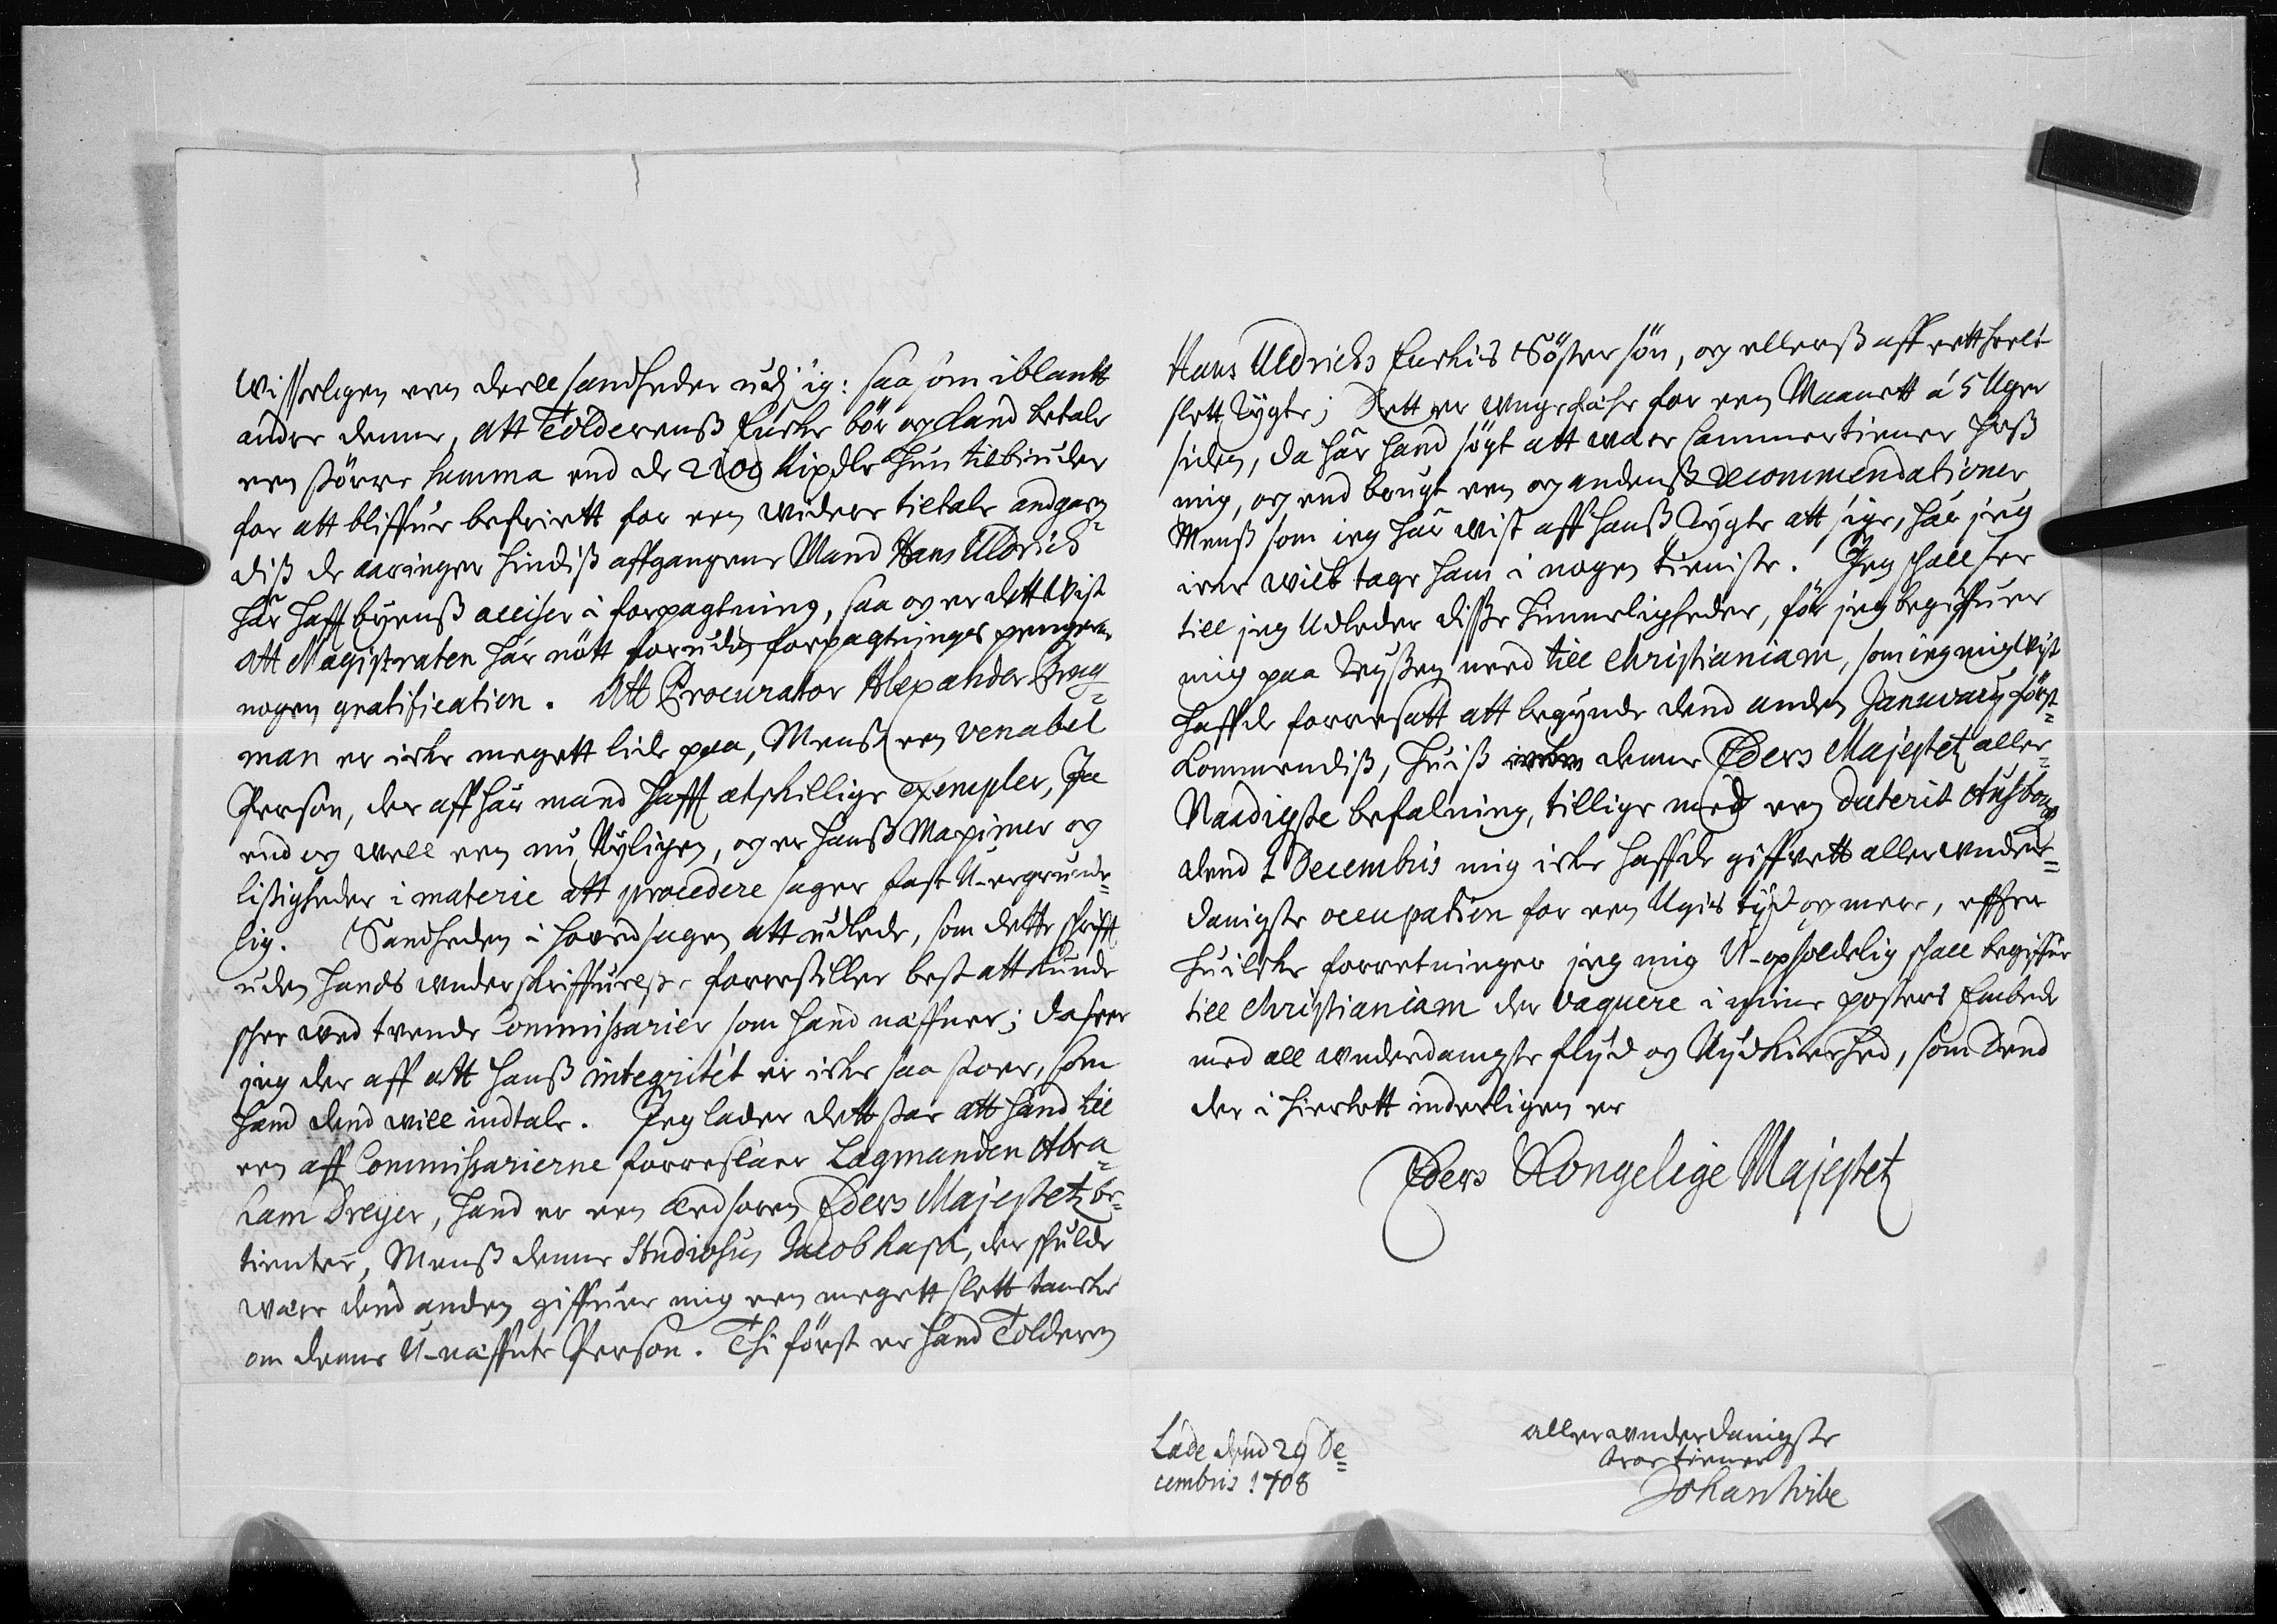 Wisseligen een deell sandheder udj sig: saa som iblantt
andre denne, att Tolderens Enche bör og kand betale
een större Summa end de 2100 Rixdlr hun tilbiuder
for att bliffue befriett for een widere tiltale andgaaen¬
dis de aaringer hindis affgangene Mand Hans Uldrich
har hafft byens acciser i forpagtning, saa og er dett Vist
att Magistraten har nött foruden forpagtnings pengene
nogen gratification. Att Procurator Alexander Brug¬
man er icke megett lide paa, Mens een venabel
Person, der aff har mand hafft atskillige Exempler, Ja
end og well een nu Nyligen, og er hans Maximer og
listigheder i materie att procedere sager fast U-ergrunde¬
lig. Sandheden i hovedsagen att udlede, som dette skrifft
uden hands underskriffuelse forrestiller best att kunde
skee wed trende Commissarier som hand näffner; da seer
jeg der aff att hans integritet er icke saa stoer, som
hand dend will indtale. Jeg lader dett staa att hand till
een aff Commissarierne forreslaar Lagmanden Abra¬
ham Dreyer, hand er een Edsoren Eders Majestetz be¬
tienter, Mens denne Studiosus Jacob Rask, der skulde
waere dend anden giffuer mig een megett slett tancke
om denne U-näffnte Person. Thi först er hand Tolderen
Hans Uldrichs Enckis Söster sön, og ellers aff ett heelt
slett Rygte; Dett er ungefähr for een Maanett á 5 Uger
siden, da har hand sögt att waere Cammertiener hos
mig, og end brugt een og andens recommendationer
Mens som jeg har wist aff hans Rygte att sige, har jeg
icke wilt tage ham i nogen tieniste. Jeg skall see
till jeg Udleder disse Hemmeligheder, för jeg begiffuer
mig paa Reysen need till Christianiam, som jeg mig wist
haffde forresatt att begynde dend anden Januarij först¬
kommendis, huis denne Eders Majestetz aller¬
Naadigste befalning, tillige med een daterit
dend 1 Decembris mig icke haffde giffvett allerunder¬
danigste occupation for een Ugis tyd og mere, effter
huilcke forretninger jeg mig U-opholdelig skall begiffue
till Christianiam der vaquere i mine posters Embede
med all underdanigste flyd og Nydkierhed, som dend
der i hiertett inderligen er
Eders Kongelige Majestetz
Lade dend 29 De¬
cembris 1708
allerunderdanigste
troe tiener
Johan Wibe